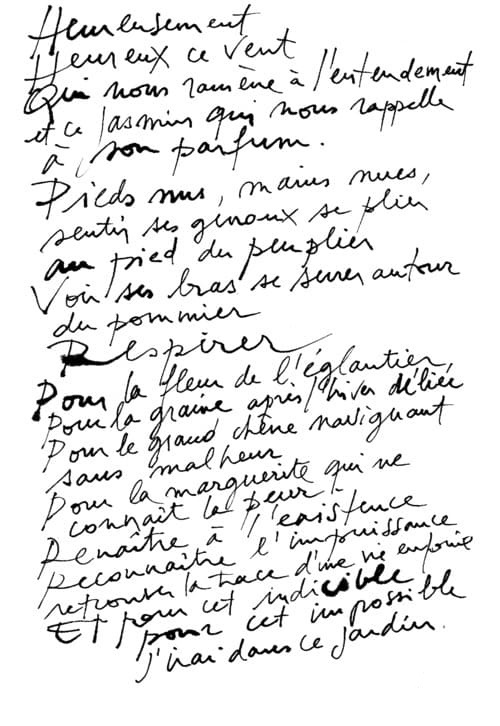 Heureusement
Heureux ce vent
Qui nous ramène à l'entendement
et ce Jasmin qui nous rappelle
à son parfum.
Pieds nus, mains nues,
sentir ses genoux se plier
au pied du peuplier
Voir ses bras se serrer autour
du pommier
Respirer
Pour la fleur de l'églantier,
Pour la graine après l'hiver déliée
Pour le grand chêne naviguant
sans malheur
Pour la marguerite qui ne
connaît la peur.
Renaître à l'existence
Reconnaître l'impuissance
retrouver la trace d'une vie enfouie
Et pour cet indicible
pour cet impossible
J'irai dans ce jardin.